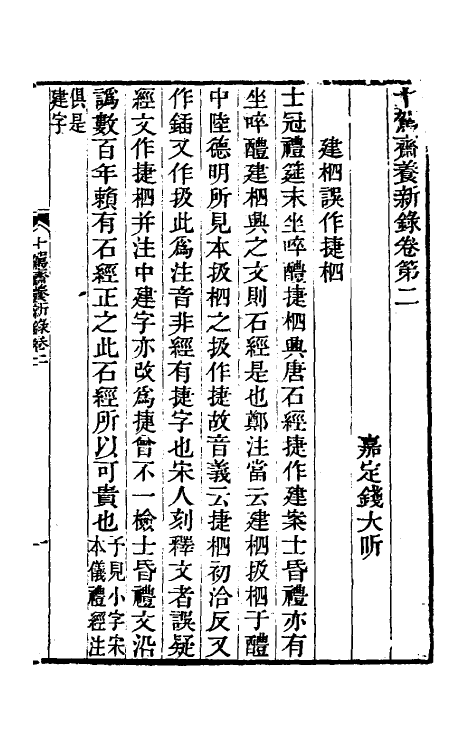 十駕齋養新錄卷第二
嘉定錢大昕
建柶誤作捷柶
士冠禮筵末坐啐醴捷柶興唐石經捷作建案士昏禮亦有
坐啐醴建柶興之文則石經是也鄭注當云建柶扱柶于醴
中陸德明所見本扱柶之扱作捷故音義云捷柶初洽反又
作鍤又作扱此爲注音非經有捷字也宋人刻釋文者誤疑
經文作捷柶并注中建字亦改爲捷曾不一檢士昏禮文沿
譌數百年賴有石經正之此石經所以可貴也予見小字宋
本儀禮經注
俱是
建字
十駕齋養新錄卷二
一